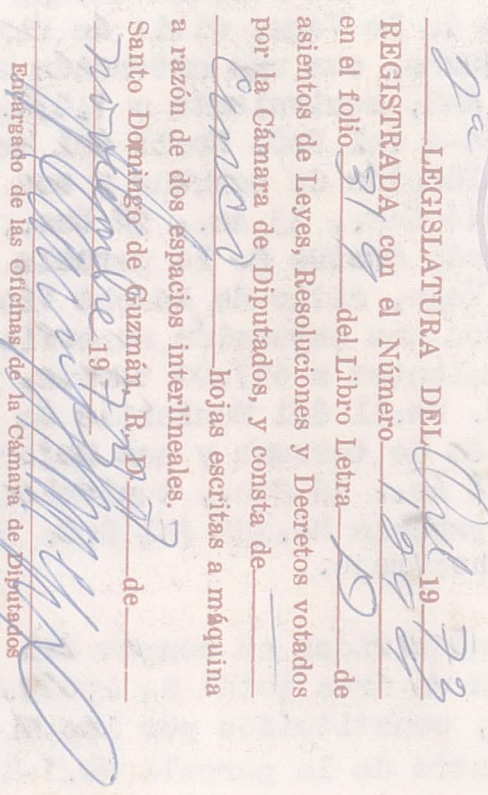 2a LEGISLATURA DEL Ord. 1973
REGISTRADA con el Número 199
en el folio 319 del Libro Letra D de
asientos de Leyes, Resoluciones y Decretos votados
por la Cámara de Diputados, y consta de
Cinco hojas escritas a máquina
a razón de dos espacios interlineales.
Santo Domingo de Guzmán, R. D. 7 de
noviembre 1973
Encargado de las Oficinas de la Cámara de Diputados